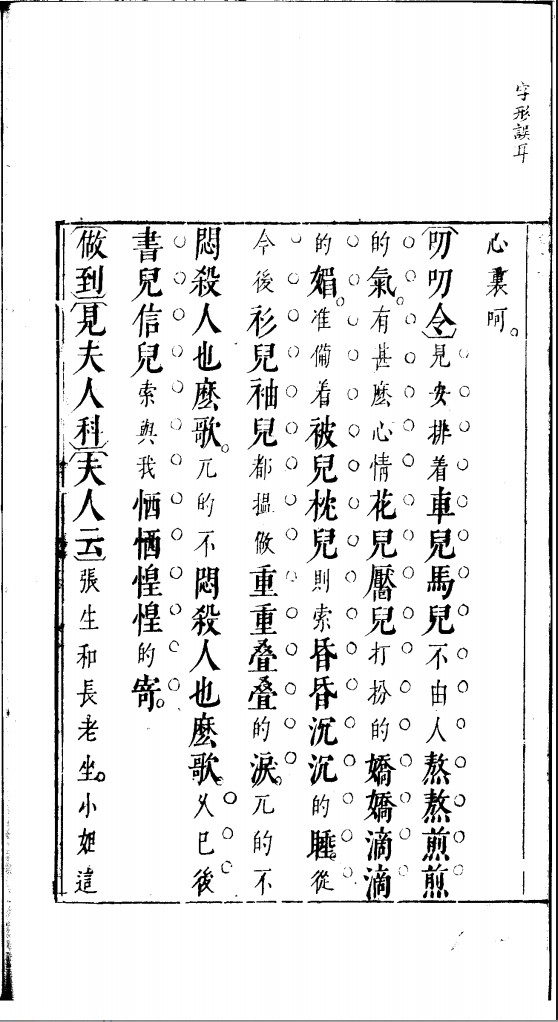 字形誤耳
心裏呵。
〔叨叨令〕見安排着車兒馬兒不由人熬熬煎煎
的氣。有甚麽心情花兒靨兒打扮的嬌嬌滴滴
的媚。准備着被兒枕兒則索昏昏沉沉的睡。從
今後衫兒袖兒都揾做重重叠叠的淚。兀的不
悶殺人也麽歌。兀的不悶殺人也麽歌。久已後
書兒信兒索與我恓恓惶惶的寄。
〔做到〕〔見夫人科〕〔夫人云〕張生和長老坐。小姐這